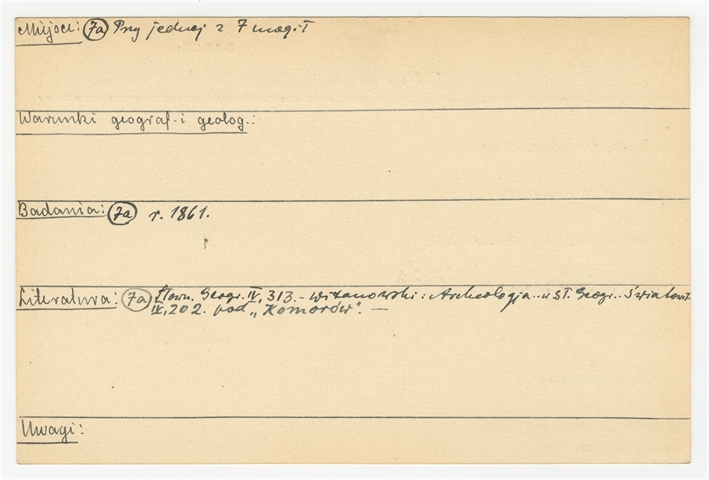 Miejsce: (7a) Przy jednej z 7 mogił
Warunki geograf. i geolog.:
Badania: (7a) r. 1861.
Literatura: (7a) Słown. Geogr. IV, 313. – Witanowski: Archeologja.. w Sł. Geogr.. Światowit
IV, 202. pod „Komorów". —
Uwagi: